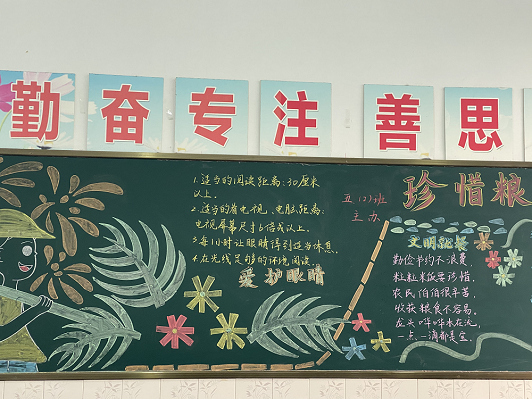 勤奋专注善思
1.适当的阅读距离:30厘米
以上。
2.适当的看电视、电脑距离:
电视屏幕尺寸6倍或以上。
3.每1小时让眼睛得到适当休息。
4.在光线足够的环境阅读。
爱护眼睛
五(2)班
主办
珍惜粮
文明就餐
勤俭节约不浪费,
粒粒米饭要珍惜。
农民伯伯很辛苦,
收获粮食不容易。
龙头哗哗水在流,
一点一滴都是宝。